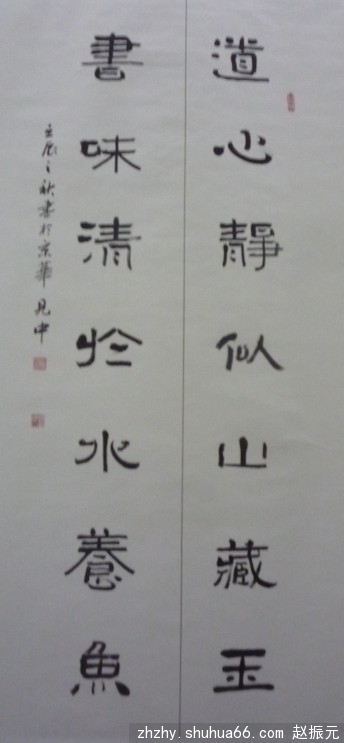 道心靜似山藏玉
書味清於水養魚
壬辰之秋書於京華 見中
zhzhy.shuhua66.com 赵振元